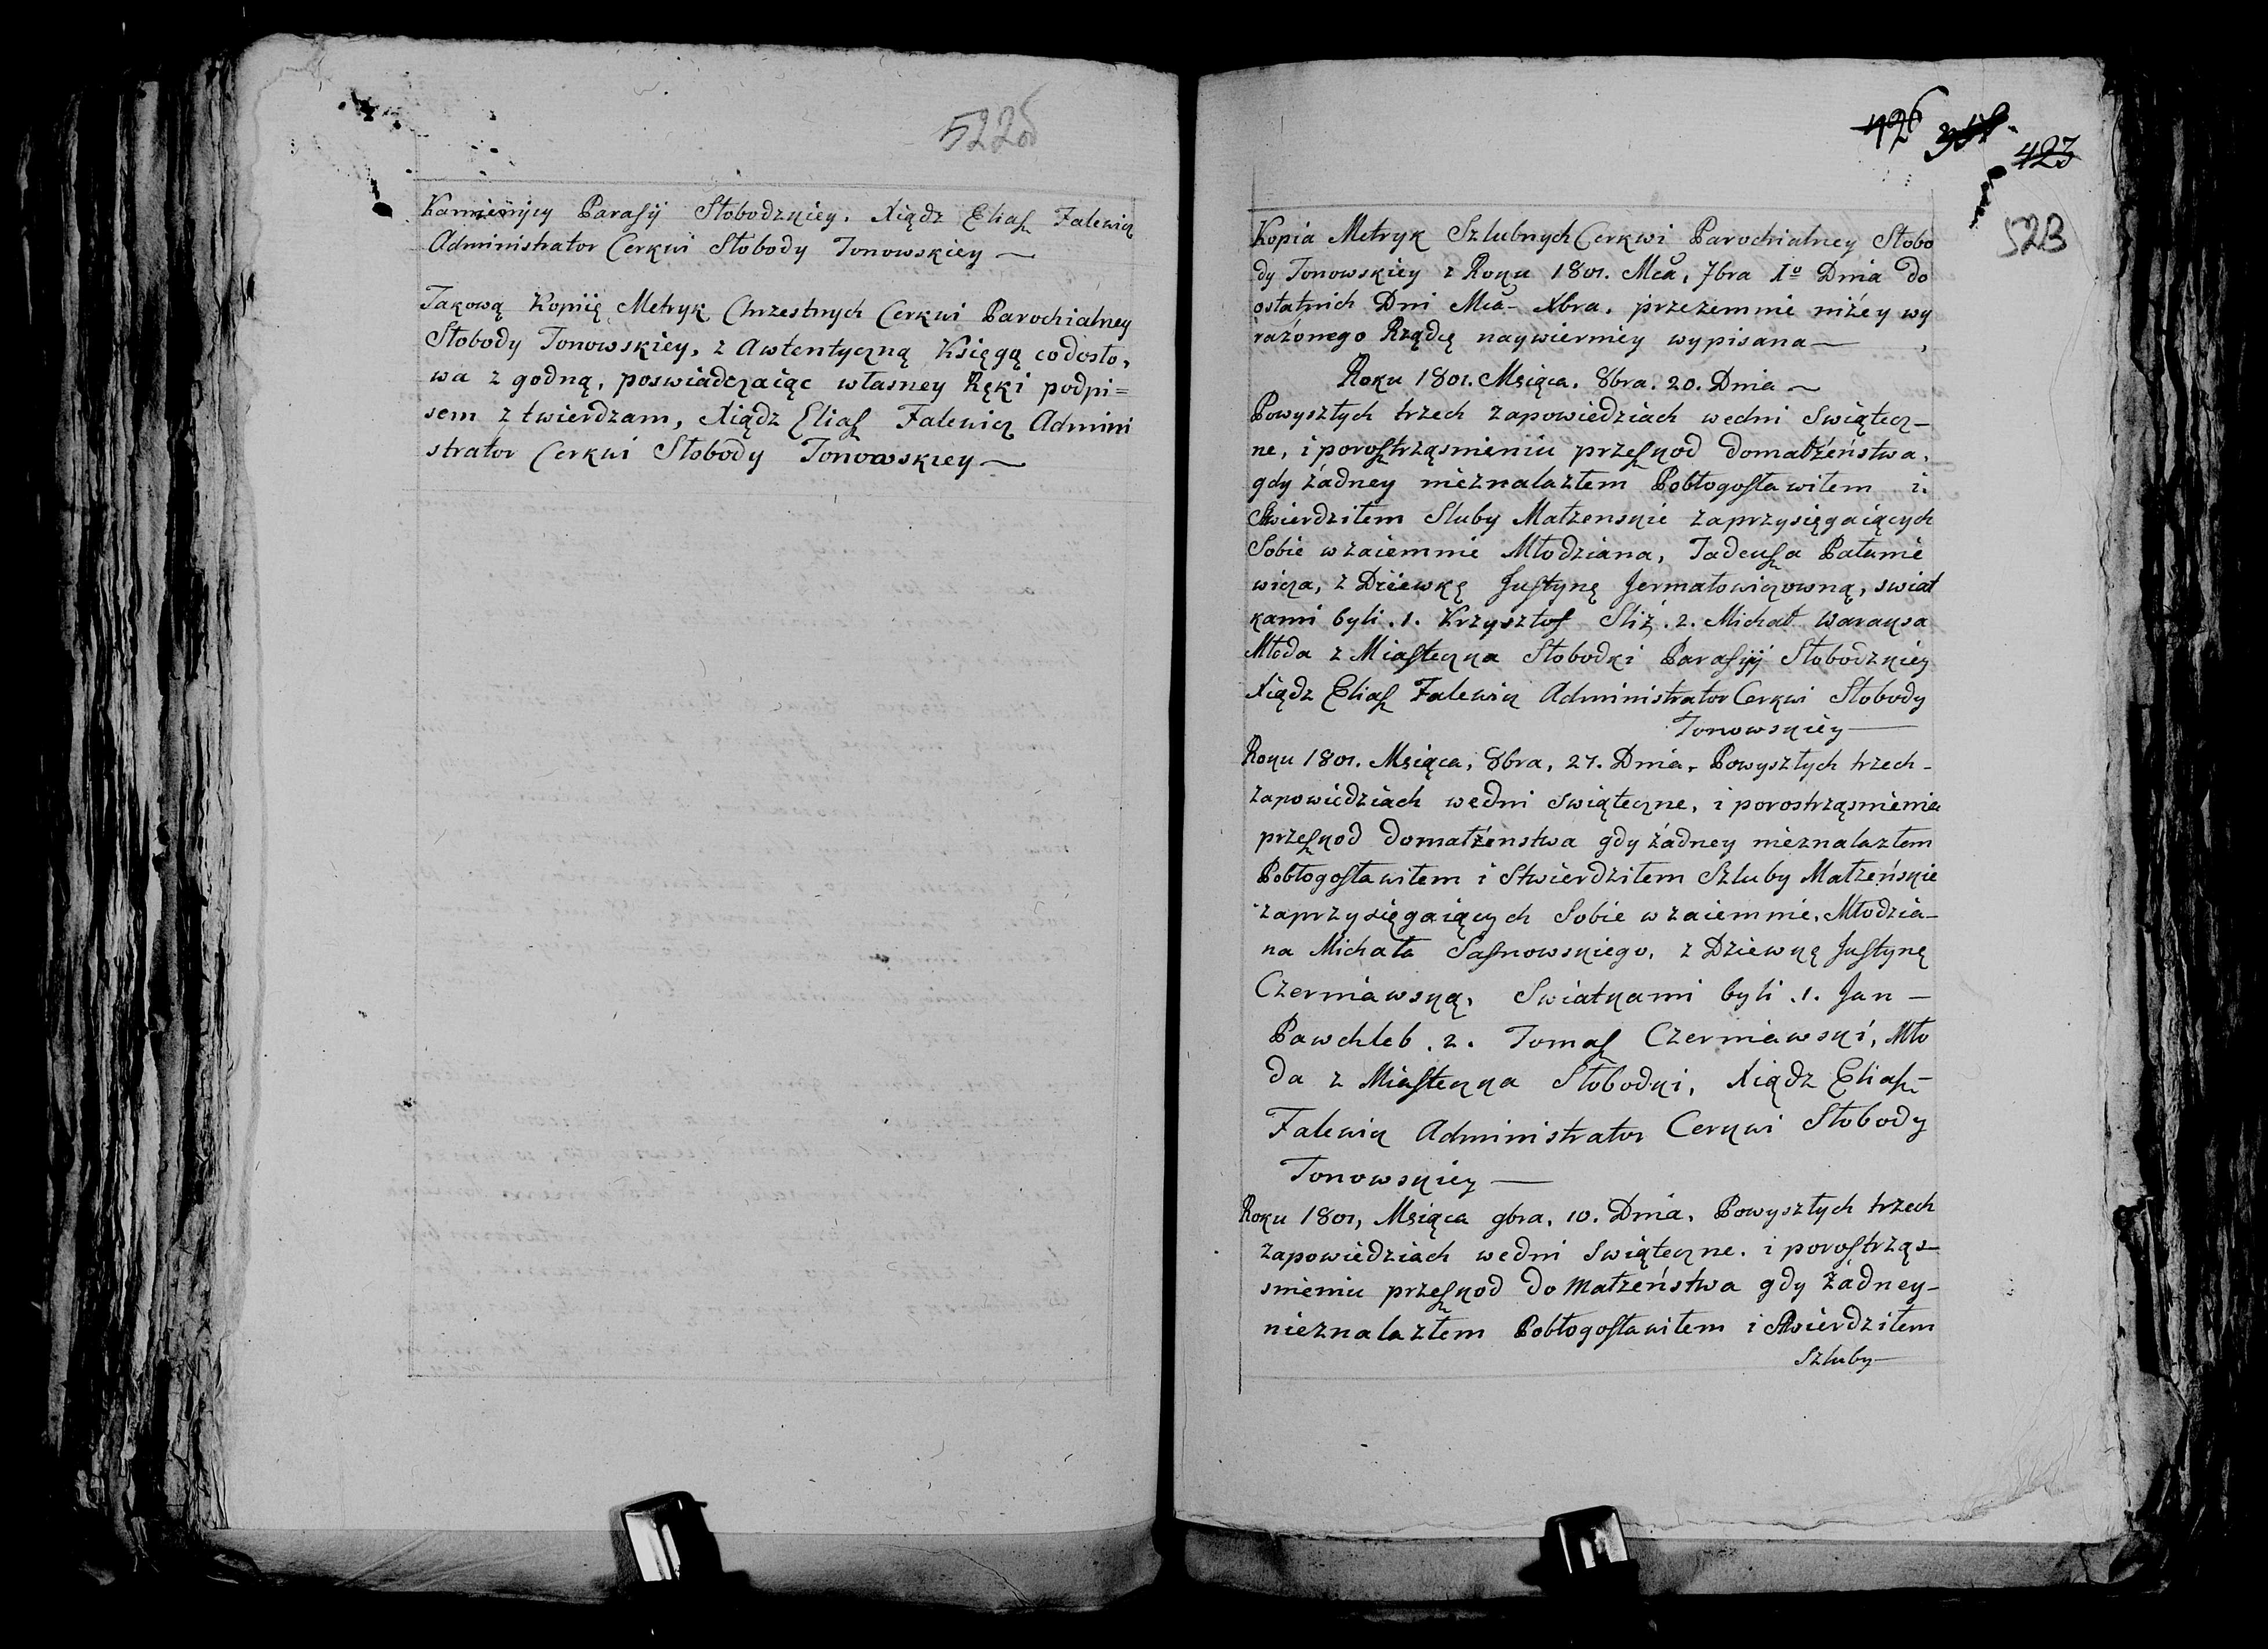 522об
Kamienycy Parafij Słobodzkiey. Xiądz Eliaſz Falewicz
Administrator Cerkwi Słobody Jonowskiey —
Takową Kopiię Metryk Chrzestnych Cerkwi Parochialney
Słobody Jonowskiey, z Awtentyczną Księgą codosło,
wa z godną, poswiadczaiąc własney Ręki podpi=
sem z twierdzam, Xiądz Eliaſz Falewicz Admini
strator Cerkwi Słobody Jonowskiey —
426
423
523
Kopia Metryk Szlubnych Cerkwi Parochialney Słobo
dy Jonowskiey z Roku 1801. Mca, 7bra 1º Dnia do
ostatnich Dni Mca- Xbra, przezemnie niżéy wy
rażonego Rządcę naywierniey wypisana —
Roku 1801. Msiąca. 8bra. 20. Dnia —
Powyszłych trzech zapowiedziach wedni Swiątecz—
ne, i poroſtrząsnieniu przeſzkod domałżéństwa,
gdy żadney nieznalazłem Pobłogoſławiłem i.
Stwierdziłem Sluby Małzenskie zaprzysięgaiących
Sobie wzaiemnie Młodziana, Tadeuſza Pałunie
wicza, z Dziewką Juſtyną Jermałowiczowną, swiat
kami byli .1. Krzysztof Sliż .2. Michał Waraksa
Młoda z Miaſteczka Słobodki Parafiji Słobodzkiey
Xiądz Eliaſz Falewicz Administrator Cerkwi Słobody
Jonowskiey —
Roku 1801. Msiąca, 8bra, 27. Dnia, Powyszłych trzech-
zapowiedziach wedni Swiąteczne, i porostrząsnieniu
przeſzkod domałżenstwa gdy żadney nieznalazłem
Pobłogoſławiłem i Stwierdziłem Szluby Małzeńskie
zaprzysięgaiących Sobie wzaiemnie, Młodzia-
na Michała Saſnowskiego, z Dziewką Juſtyną
Czerniawską, Swiatkami byli .1. Jan —
Pawchleb .2. Tomaſz Czerniawski, Mło
da z Miaſteczka Słobodki, Xiądz Eliaſz—
Falewicz Administrator Cerkwi Słobody
Jonowskiey —
Roku 1801, Msiąca 9bra, 10. Dnia, Powyszłych trzech
zapowiedziach wedni Swiąteczne. i poroſtrząs-
snieniu przeſzkod do małzeństwa gdy żadney-
nieznalazłem Pobłogoſławiłem i Stwierdziłem
Szluby —